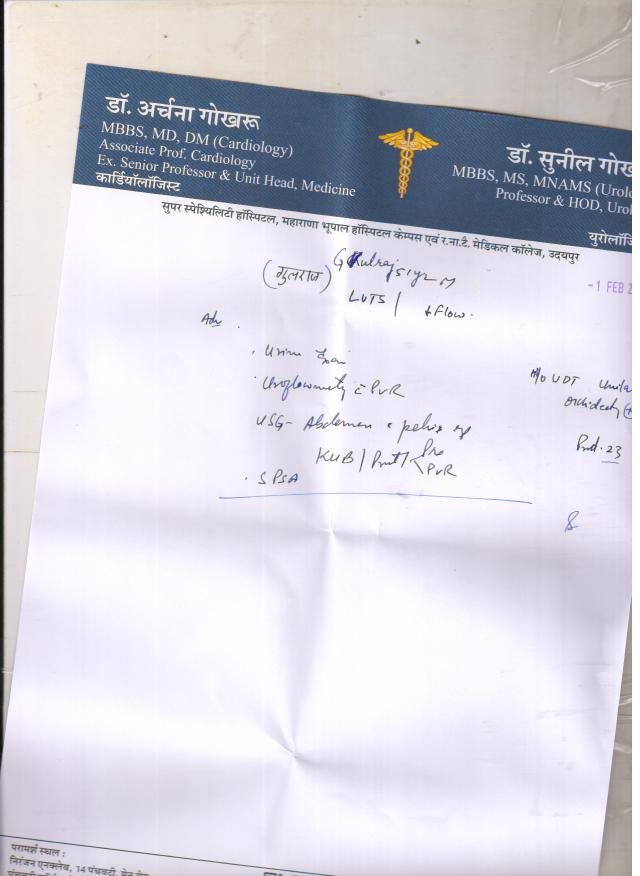 डॉ. अर्चना गोखरू
MBBS, MD, DM (Cardiology)
Associate Prof. Cardiology
Ex. Senior Professor & Unit Head, Medicine
कार्डियॉलॉजिस्ट
डॉ. सुनील गोख
MBBS, MS, MNAMS (Urolo
Professor & HOD, Urol
युरोलॉजि
सुपर स्पेशियिलिटी हॉस्पिटल, महाराणा भूपाल हॉस्पिटल केम्पस एवं र.ना.टै. मेडिकल कॉलेज, उदयपुर
(गुलराज)
-1 FEB 2
LUTS / Flow.
Adv
Urine
Uroflowmetry PVR
H/O UDT
USG- Abdomen pelvis
KUB / Prost / Pre
PVR
23
S PSA
परामर्श स्थल :
निरंजन एनक्लेव, 14 पंचवटी,